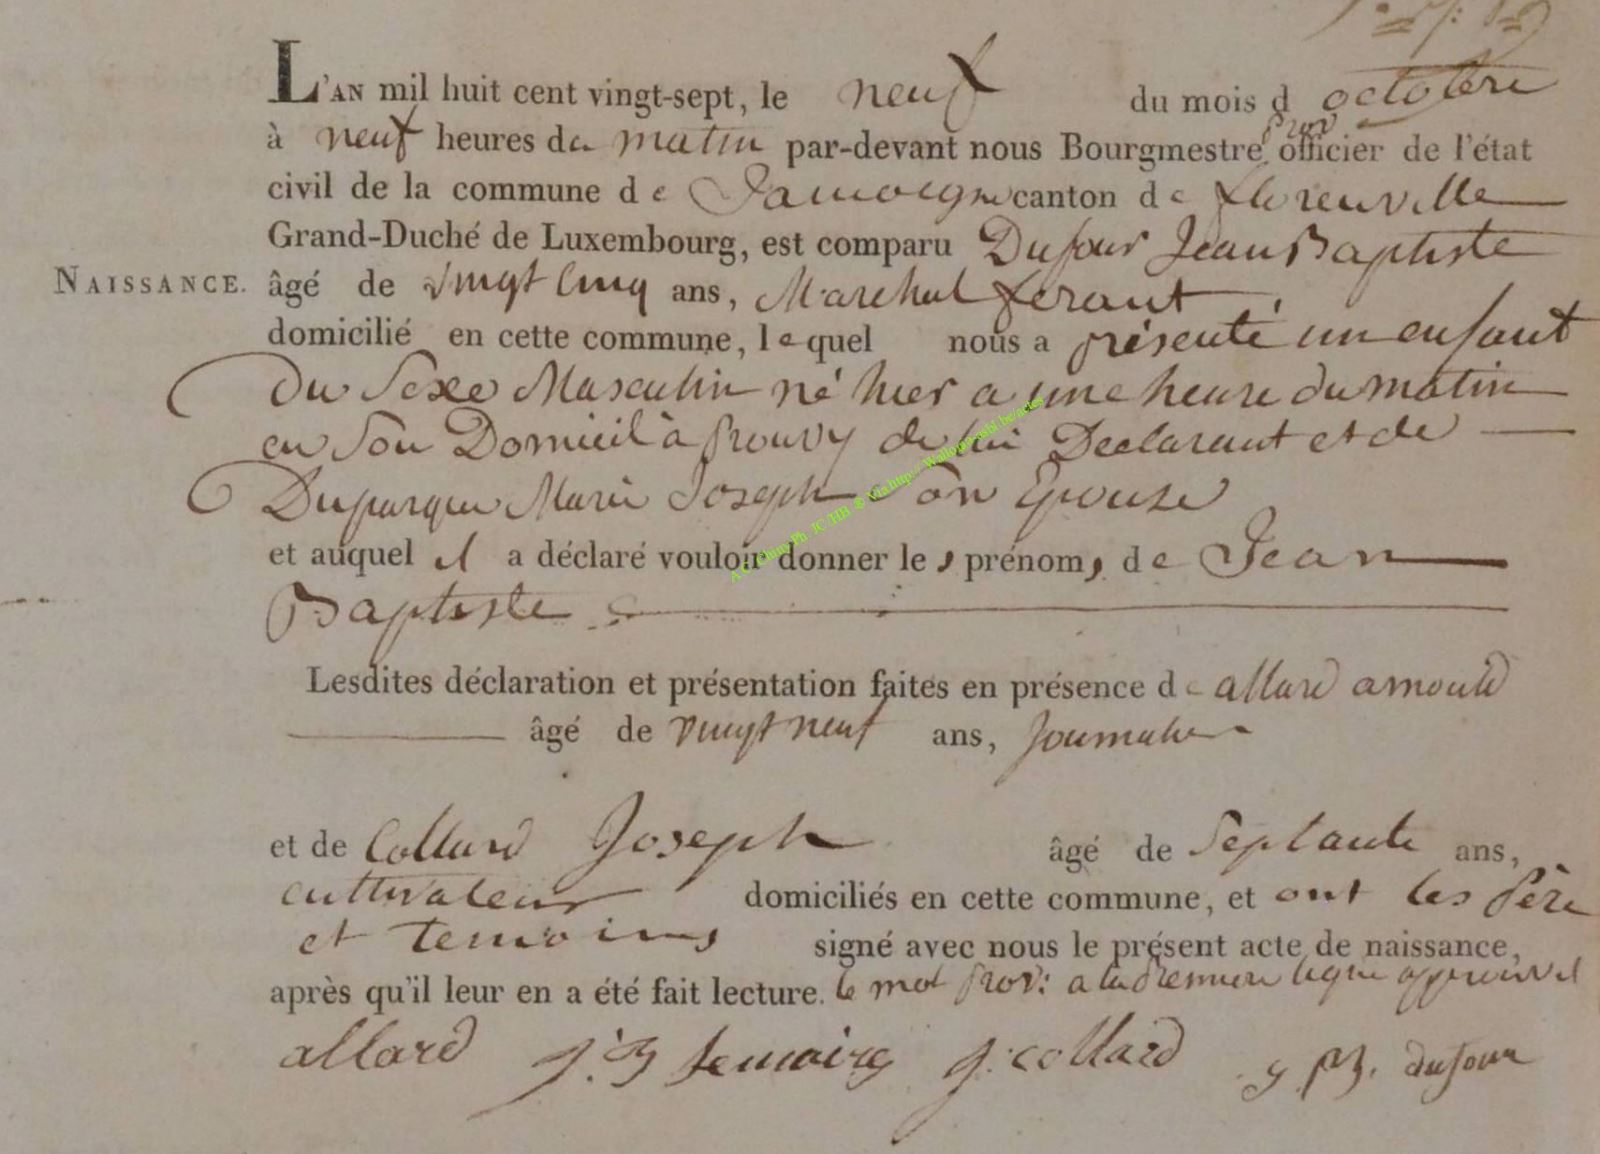 L'AN mil huit cent vingt-sept, le neuf du mois d octobre
à neuf heures du matin par-devant nous Bourgmestre prov officier de l'état
civil de la commune de Jamoigne canton de florenville
Grand-Duché de Luxembourg, est comparu Dufour Jean Baptiste
NAISSANCE. âgé de vingt cinq ans, Marehal ferant
domicilié en cette commune, lequel nous a présenté un enfant
Du Sexe Masculin né hier a une heure du matin
en Son Domicil à prouvy de lui Declarant et de
Duparque Marie Joseph Son Epouse
et auquel il a déclaré vouloir donner les prénoms de Jean
Baptiste
Lesdites déclaration et présentation faites en présence de allard arnould
âgé de vingt neuf ans, Journalier
et de Collard Joseph âgé de Septante ans,
cultivateur domiciliés en cette commune, et ont les père
et temoins signé avec nous le présent acte de naissance,
après qu'il leur en a été fait lecture. le mot prov: a la premiere ligne approuvé
allard J: B J. collard J B. dufour
A.C. Chiny Ph. JC/HB ® via http://Wallonia-asbl.be/actes